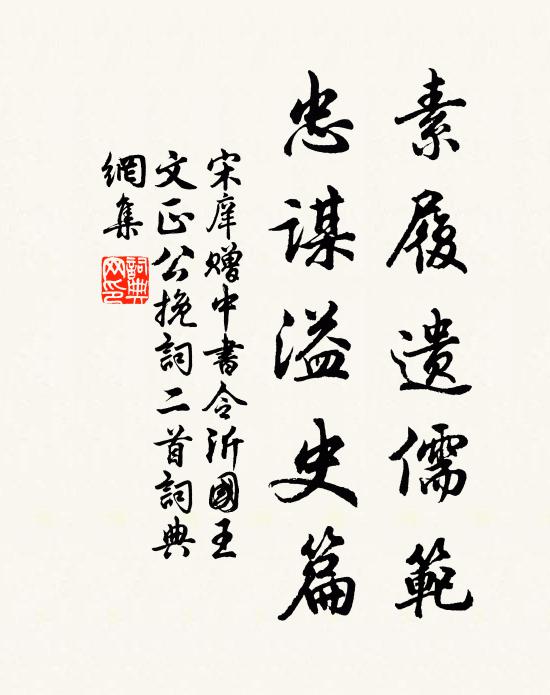 素履遺儒範
忠謀溢史篇
宋庠赠中書令沂國王
文正公挽詞二首詞典
網集
詞典網印